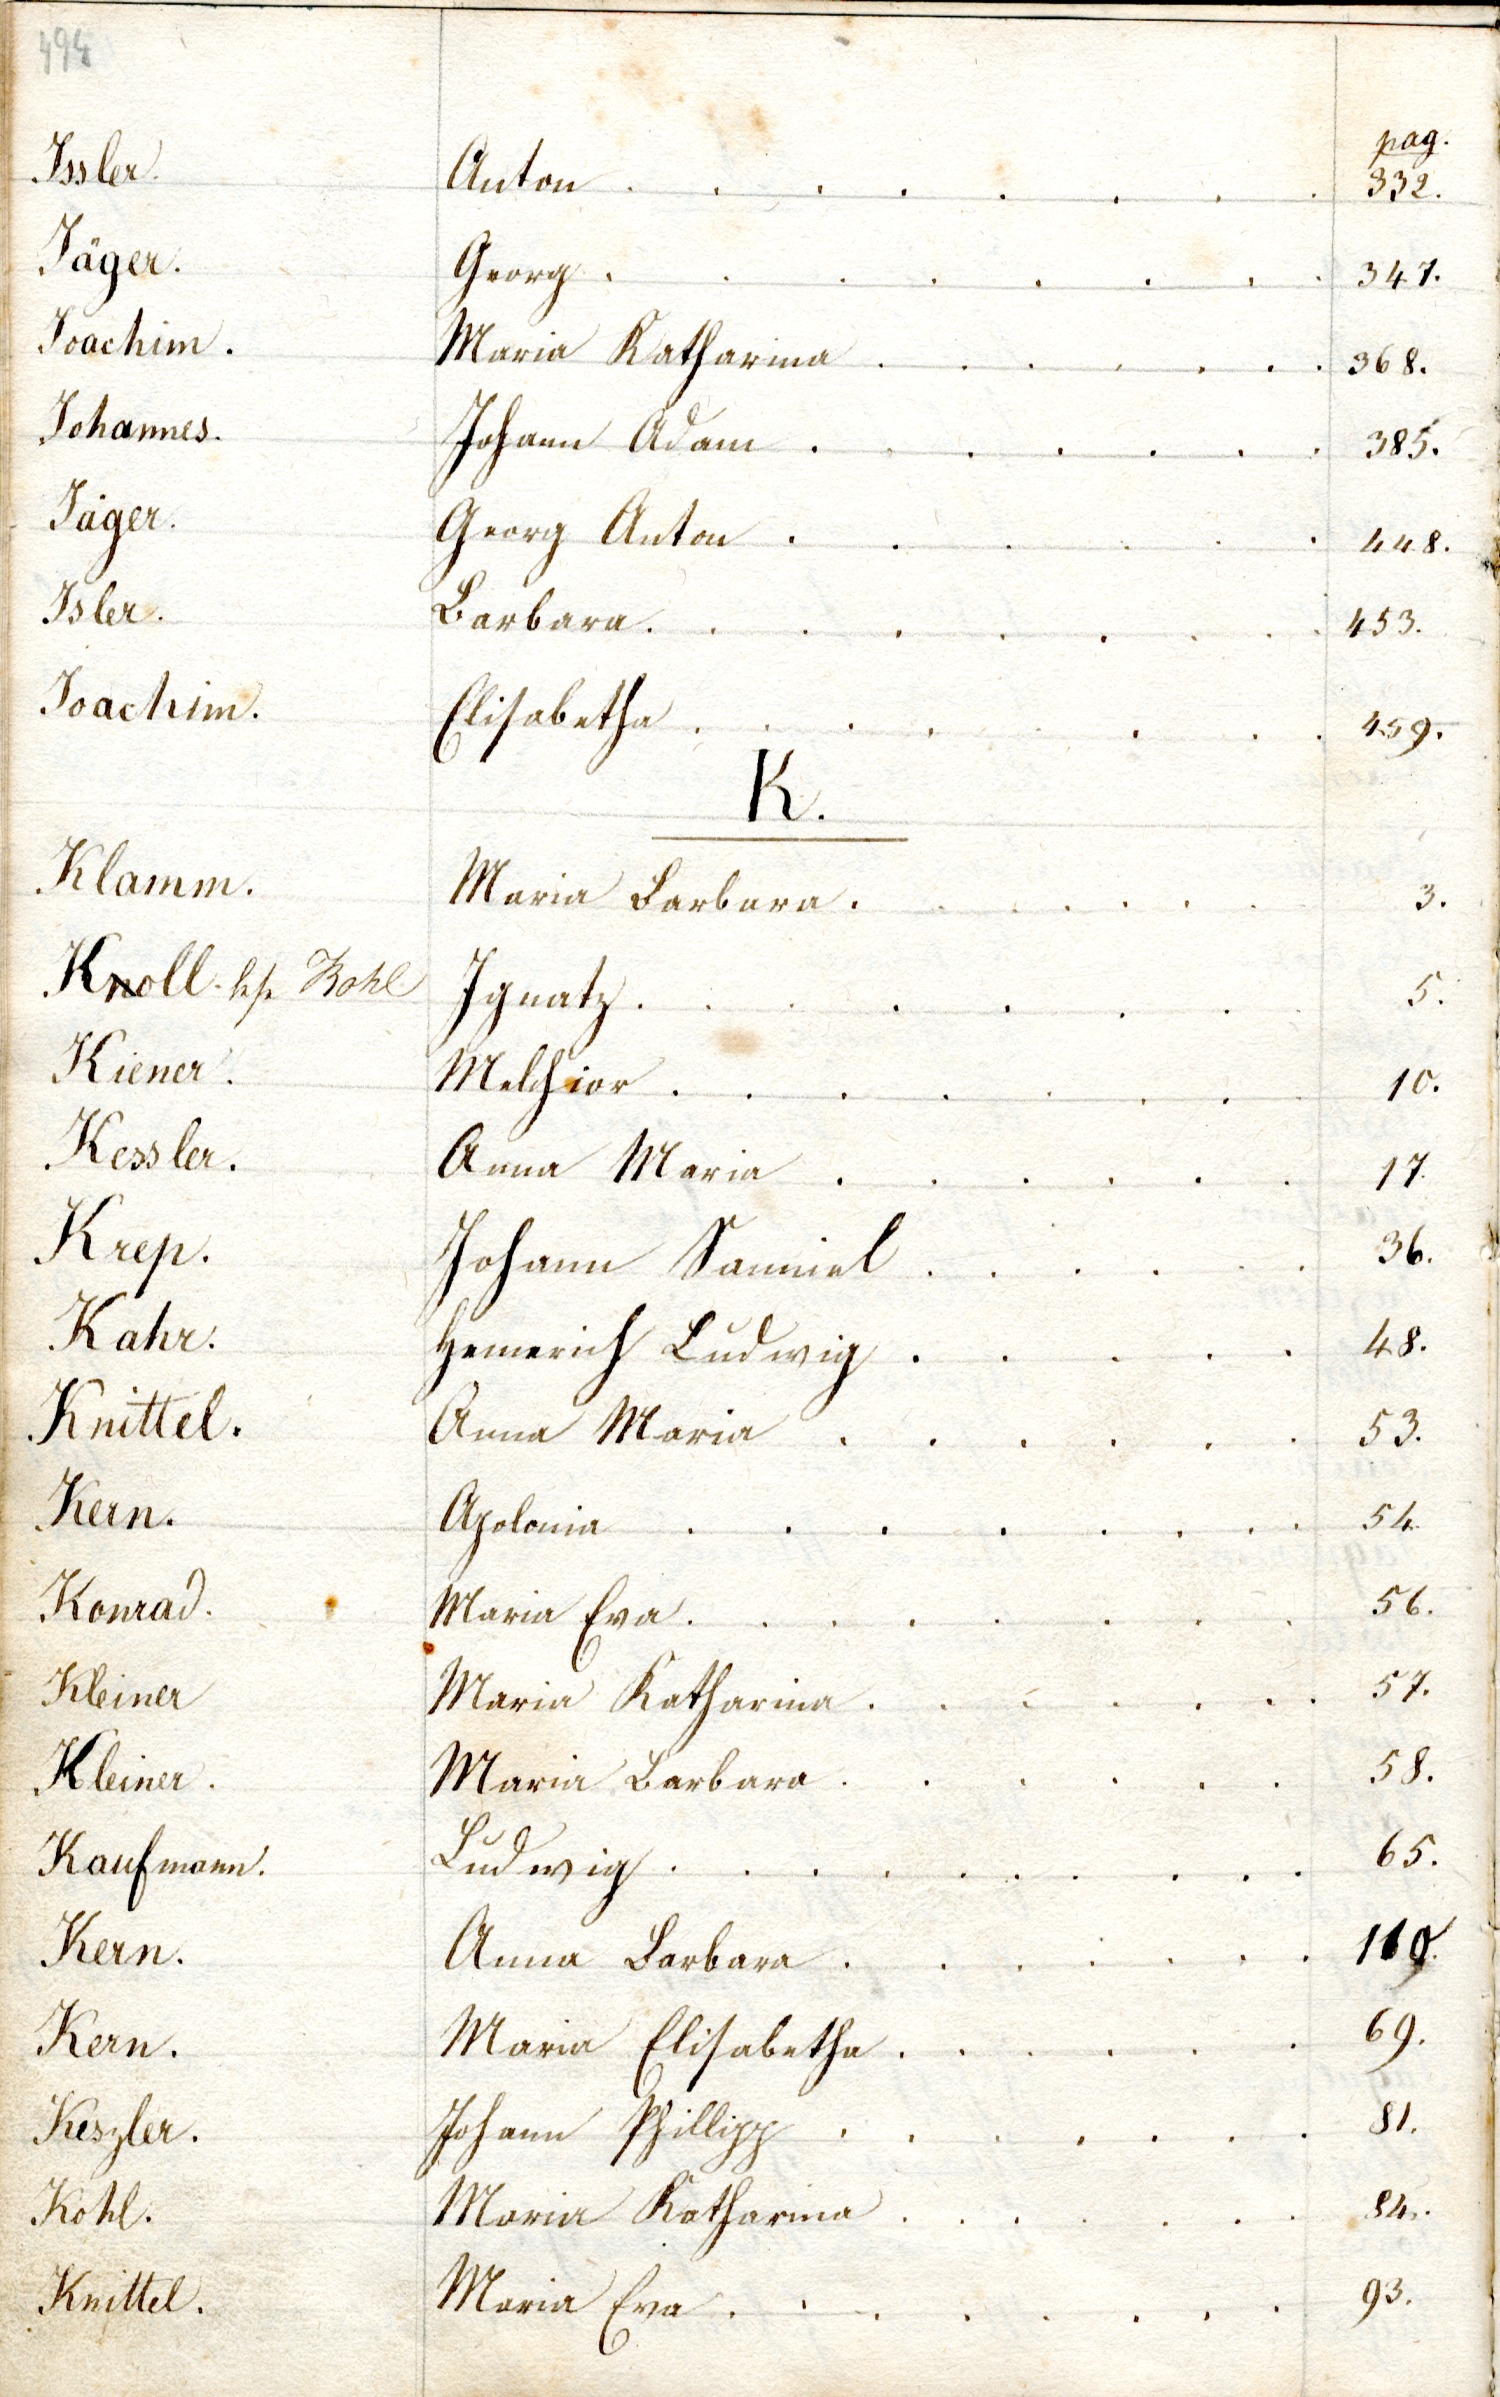 494
pag.
Issler. Anton . . . . . . . . 332.
Jäger. Georg . . . . . . . . 347.
Joachim. Maria Katharina . . . . . . . 368.
Johannes. Johann Adam . . . . . . . 385.
Jäger. Georg Anton . . . . . . 448.
Isler. Barbara . . . . . . . . 453.
Joachim. Elisabetha . . . . . . . 459.
K.
Klamm. Maria Barbara . . . . . . 3.
Knoll. Kohl Ignatz . . . . . . 5.
Kiener. Melchior . . . . . . . 10.
Kessler. Anna Maria . . . . . . 17.
Krep. Johann Samuel . . . . . . 36.
Kahr. Hemerich Ludwig . . . . . 48.
Knittel. Anna Maria . . . . . . 53.
Kern. Apolonia . . . . . . . . 54.
Konrad. Maria Eva . . . . . . . 56.
Kleiner Maria Katharina . . . . . . 57.
Kleiner. Maria Barbara . . . . . . 58.
Kaufmann. Ludwig . . . . . . . . . 65.
Kern. Anna Barbara . . . . . . . 119.
Kern. Maria Elisabetha . . . . . . 69.
Keszler. Johann Phillipp . . . . . . . 81.
Kohl. Maria Katharina . . . . . . 84.
Knittel. Maria Eva . . . . . . . 93.